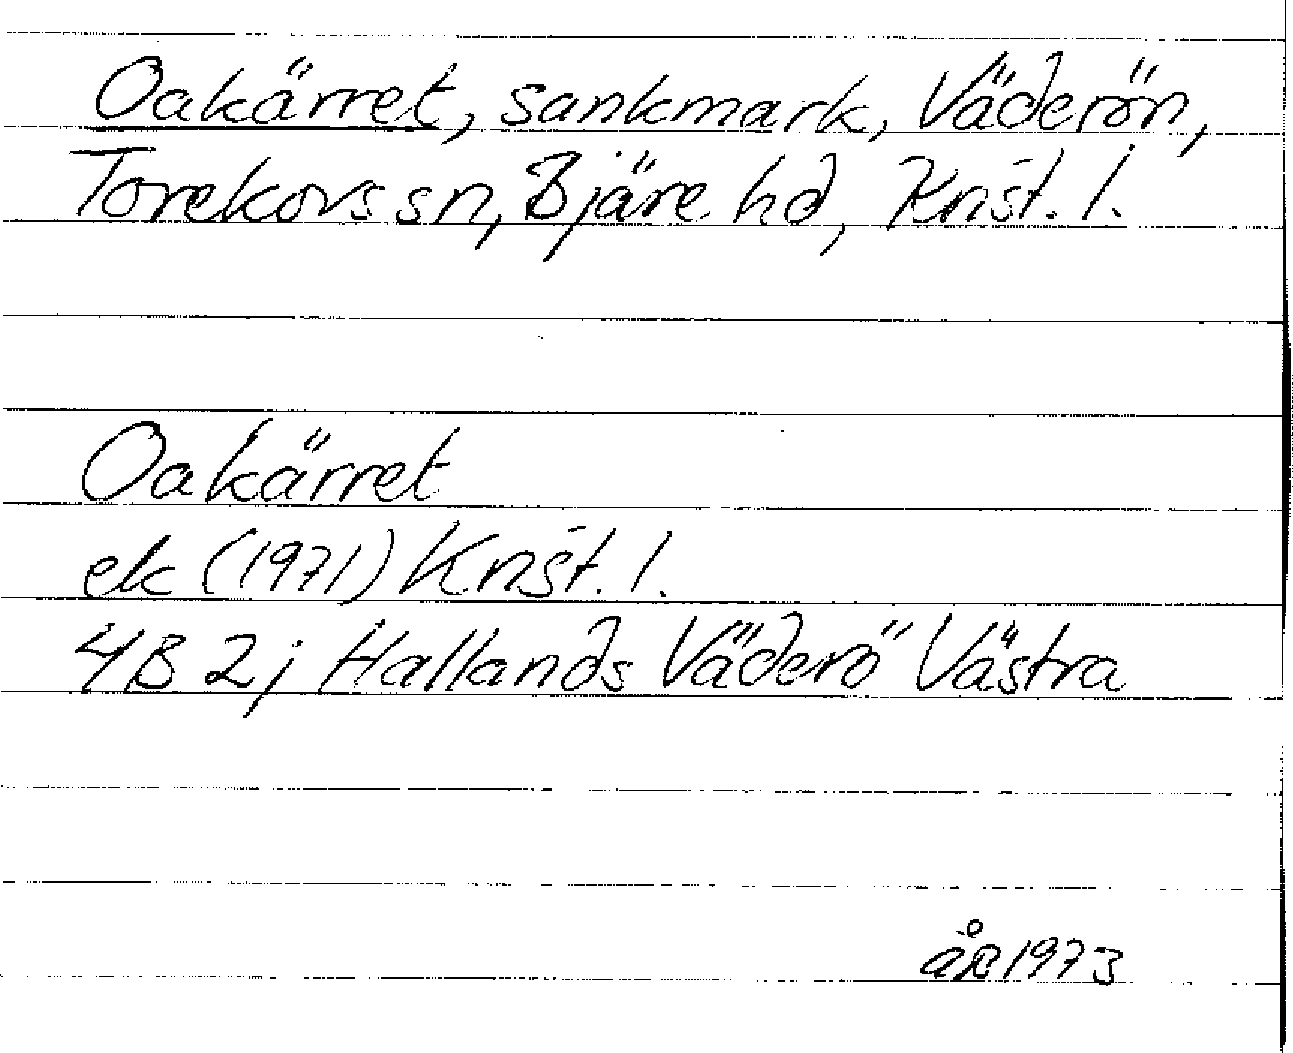 Oakärret, sankmark, Väderön,
Torekovs sn, Bjäre hd, Krist. l.
Oakärret
ek (1971) Krist. l.
4B 2j Hallands Väderö Västra
år 1973